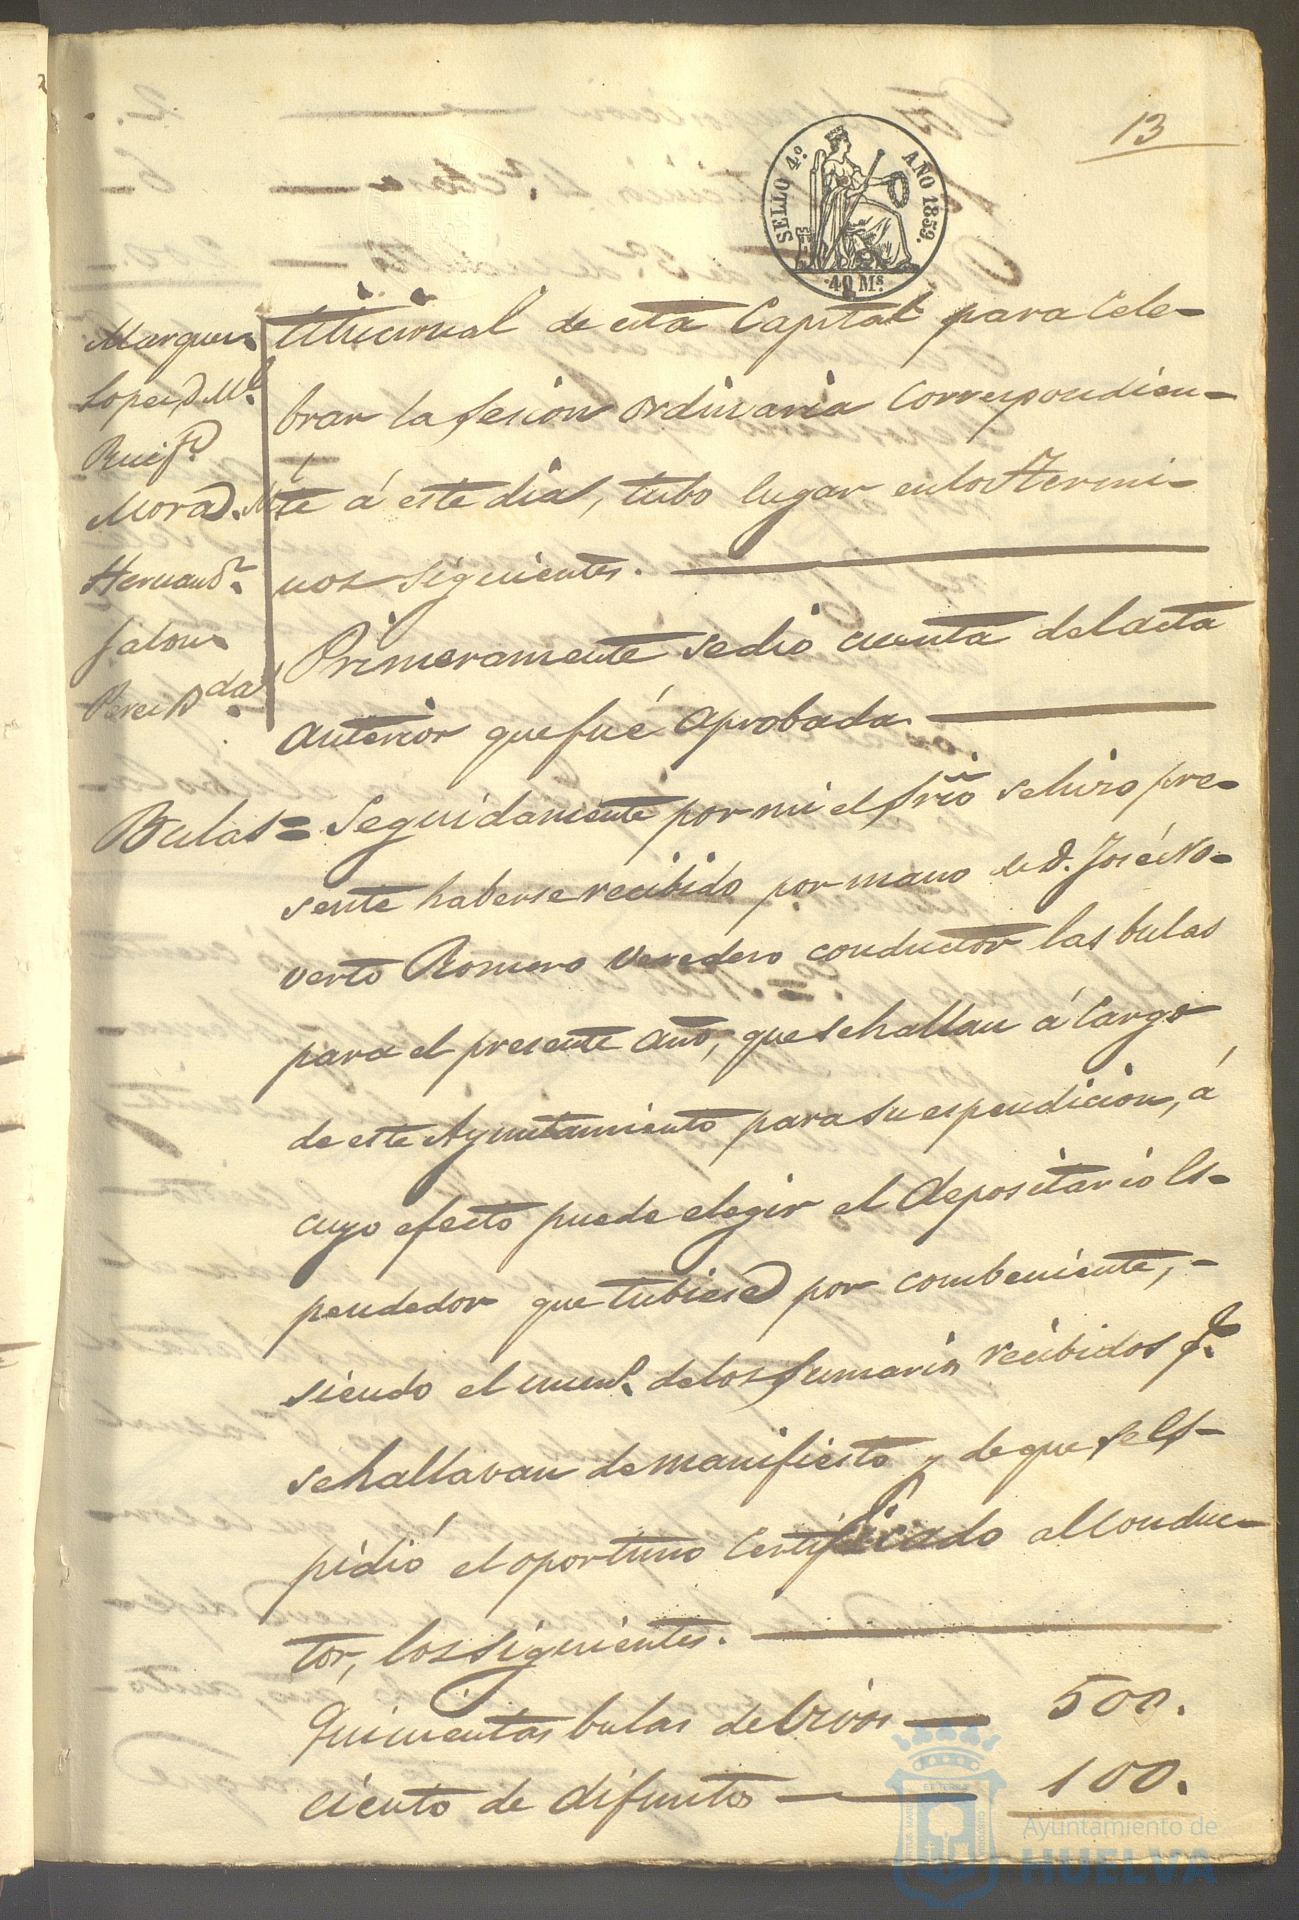 13
SELLO 4.º AÑO 1859.
40 Ms.
Marquez
Lopez D. Ml.
Ruiz
Mora D.
Hernandr.
Jalon
Perez D.
titucional de esta Capital para Cele-
brar la sesion ordinaria Correspondien-
te á este dia, tubo lugar en los termi-
nos siguientes.
Primeramente se dio cuenta del acta
anterior que fué aprobada
Bulas = Seguidamente por mi el Srio se hizo pre-
sente haberse recibido por mano de D. José No-
verto Romero Veredero conductor las bulas
para el presente año, que se hallan á Cargo
de este Ayuntamiento para su espendicion, á
cuyo efecto puede elegir el Depositario Es-
pendedor que tubiese por combeniente,-
siendo el num. de los sumarios recibidos q.
se hallavan de manifiesto y de que se Es-
pidió el oportuno Certificado al Conduc-
tor, los siguientes.
Quinientas bulas de Vivos 500.
Ciento de difuntos 100.
Ayuntamiento de
HUELVA